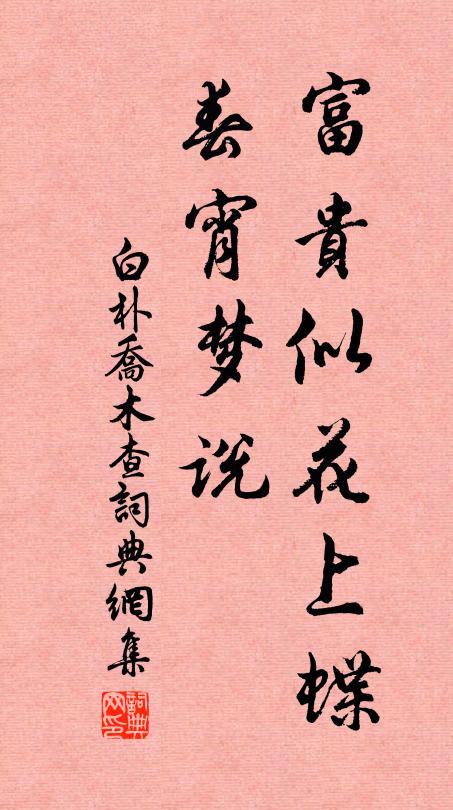 富貴似花上蝶
春宵梦说
白朴喬木查詞典網集
詞典网印